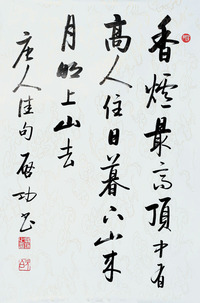 香炉最高頂中有
高人住日暮下山来
月明上山去
唐人佳句 啟功书